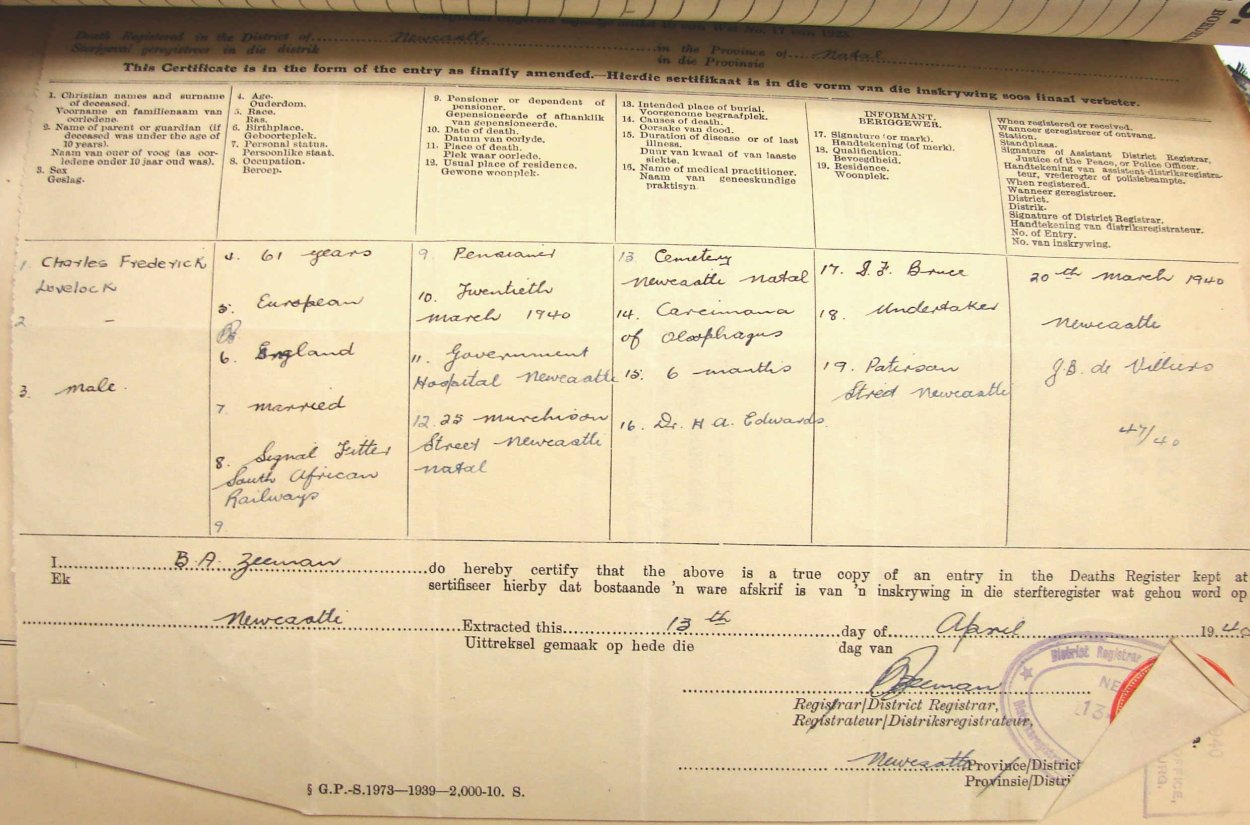 No. 17
Death Registered in the District of Newcastle in the Province of Natal
Sterfgeval geregistreer in die distrik in die Provinsie
This Certificate is in the form of the entry as finally amended.—Hierdie sertifikaat is in die vorm van die inskrywing soos finaal verbeter.
1. Christian names and surname
of deceased.
Voorname en familienaam van
oorledene.
2. Name of parent or guardian (if
deceased was under the age of
10 years).
Naam van ouer of voog (as oor-
ledene onder 10 jaar oud was).
3. Sex
Geslag.
4. Age.
Ouderdom.
5. Race.
Ras.
6. Birthplace.
Geboorteplek.
7. Personal status.
Persoonlike staat.
8. Occupation.
Beroep.
9. Pensioner or dependent of
pensioner.
Gepensioneerde of afhanklik
van gepensioneerde.
10. Date of death.
Datum van oorlyde.
11. Place of death.
Plek waar oorlede.
12. Usual place of residence.
Gewone woonplek.
13. Intended place of burial.
Voorgenome begraafplek.
14. Causes of death.
Oorsake van dood.
15. Duration of disease or of last
illness.
Duur van kwaal of van laaste
siekte.
16. Name of medical practitioner.
Naam van geneeskundige
praktisyn.
INFORMANT,
BERIGGEWER.
17. Signature (or mark).
Handtekening (of merk).
18. Qualification.
Bevoegdheid.
19. Residence.
Woonplek.
When registered or received.
Wanneer geregistreer of ontvang.
Station.
Standplaas.
Signature of Assistant District Registrar,
Justice of the Peace, or Police Officer.
Handtekening van assistent-distriksregistra-
teur, vrederegter of polisiebeampte.
When registered.
Wanneer geregistreer.
District.
Distrik.
Signature of District Registrar.
Handtekening van distriksregistrateur.
No. of Entry.
No. van inskrywing.
1. Charles Frederick
Lovelock
2 –
3. Male.
4. 61 years
5. European
6. England
7. Married
8. Signal Fitter
South African
Railways
9.
9. Pensioner
10. Twentieth
March 1940
11. Government
Hospital Newcastle
12. 25 Murchison
Street Newcastle
Natal
13 Cemetery
Newcastle Natal
14. Carcinoma
of Oesophagus
15. 6 months
16. Dr. H A. Edwards.
17. S. F. Bruce
18. Undertaker
19. Paterson
Street Newcastle
20th March 1940
Newcastle
J.B. de Villiers
47/40
I B. A. Zeeman do hereby certify that the above is a true copy of an entry in the Deaths Register kept at
Ek sertifiseer hierby dat bostaande 'n ware afskrif is van 'n inskrywing in die sterfteregister wat gehou word op
Newcastle Extracted this 13th day of April 1940
Uittreksel gemaak op hede die dag van
Zeeman
Registrar/District Registrar,
Registrateur/Distriksregistrateur,
Newcastle Province/District
Provinsie/Distri
District Registrar
NE
13
1940
OFFICE,
§ G.P.-S.1973—1939—2,000-10. S.